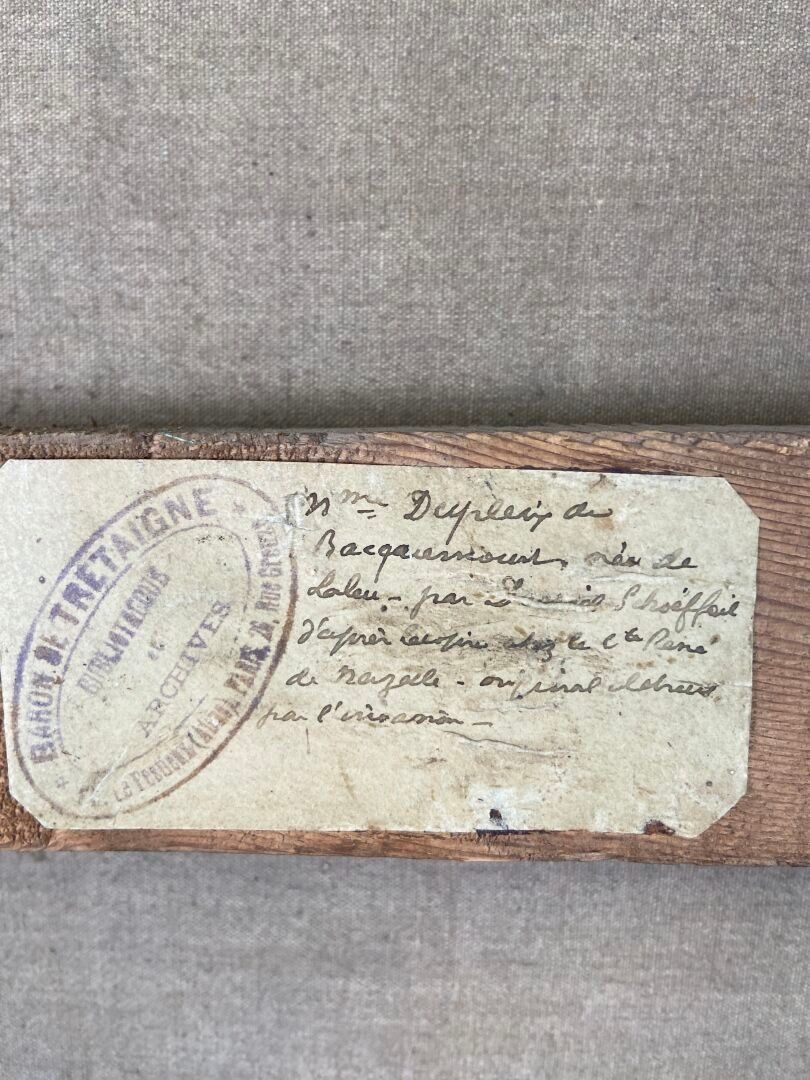 BARON DE TRETAIGNE
BIBLIOTHEQUE
ET
ARCHIVES
PARIS, RUE
Mme Dupleix de
Bacquencourt, née de
Laleu - par Schoëffeil
d'après chez le Cte René
de Nazelle - original détruit
par l'invasion -